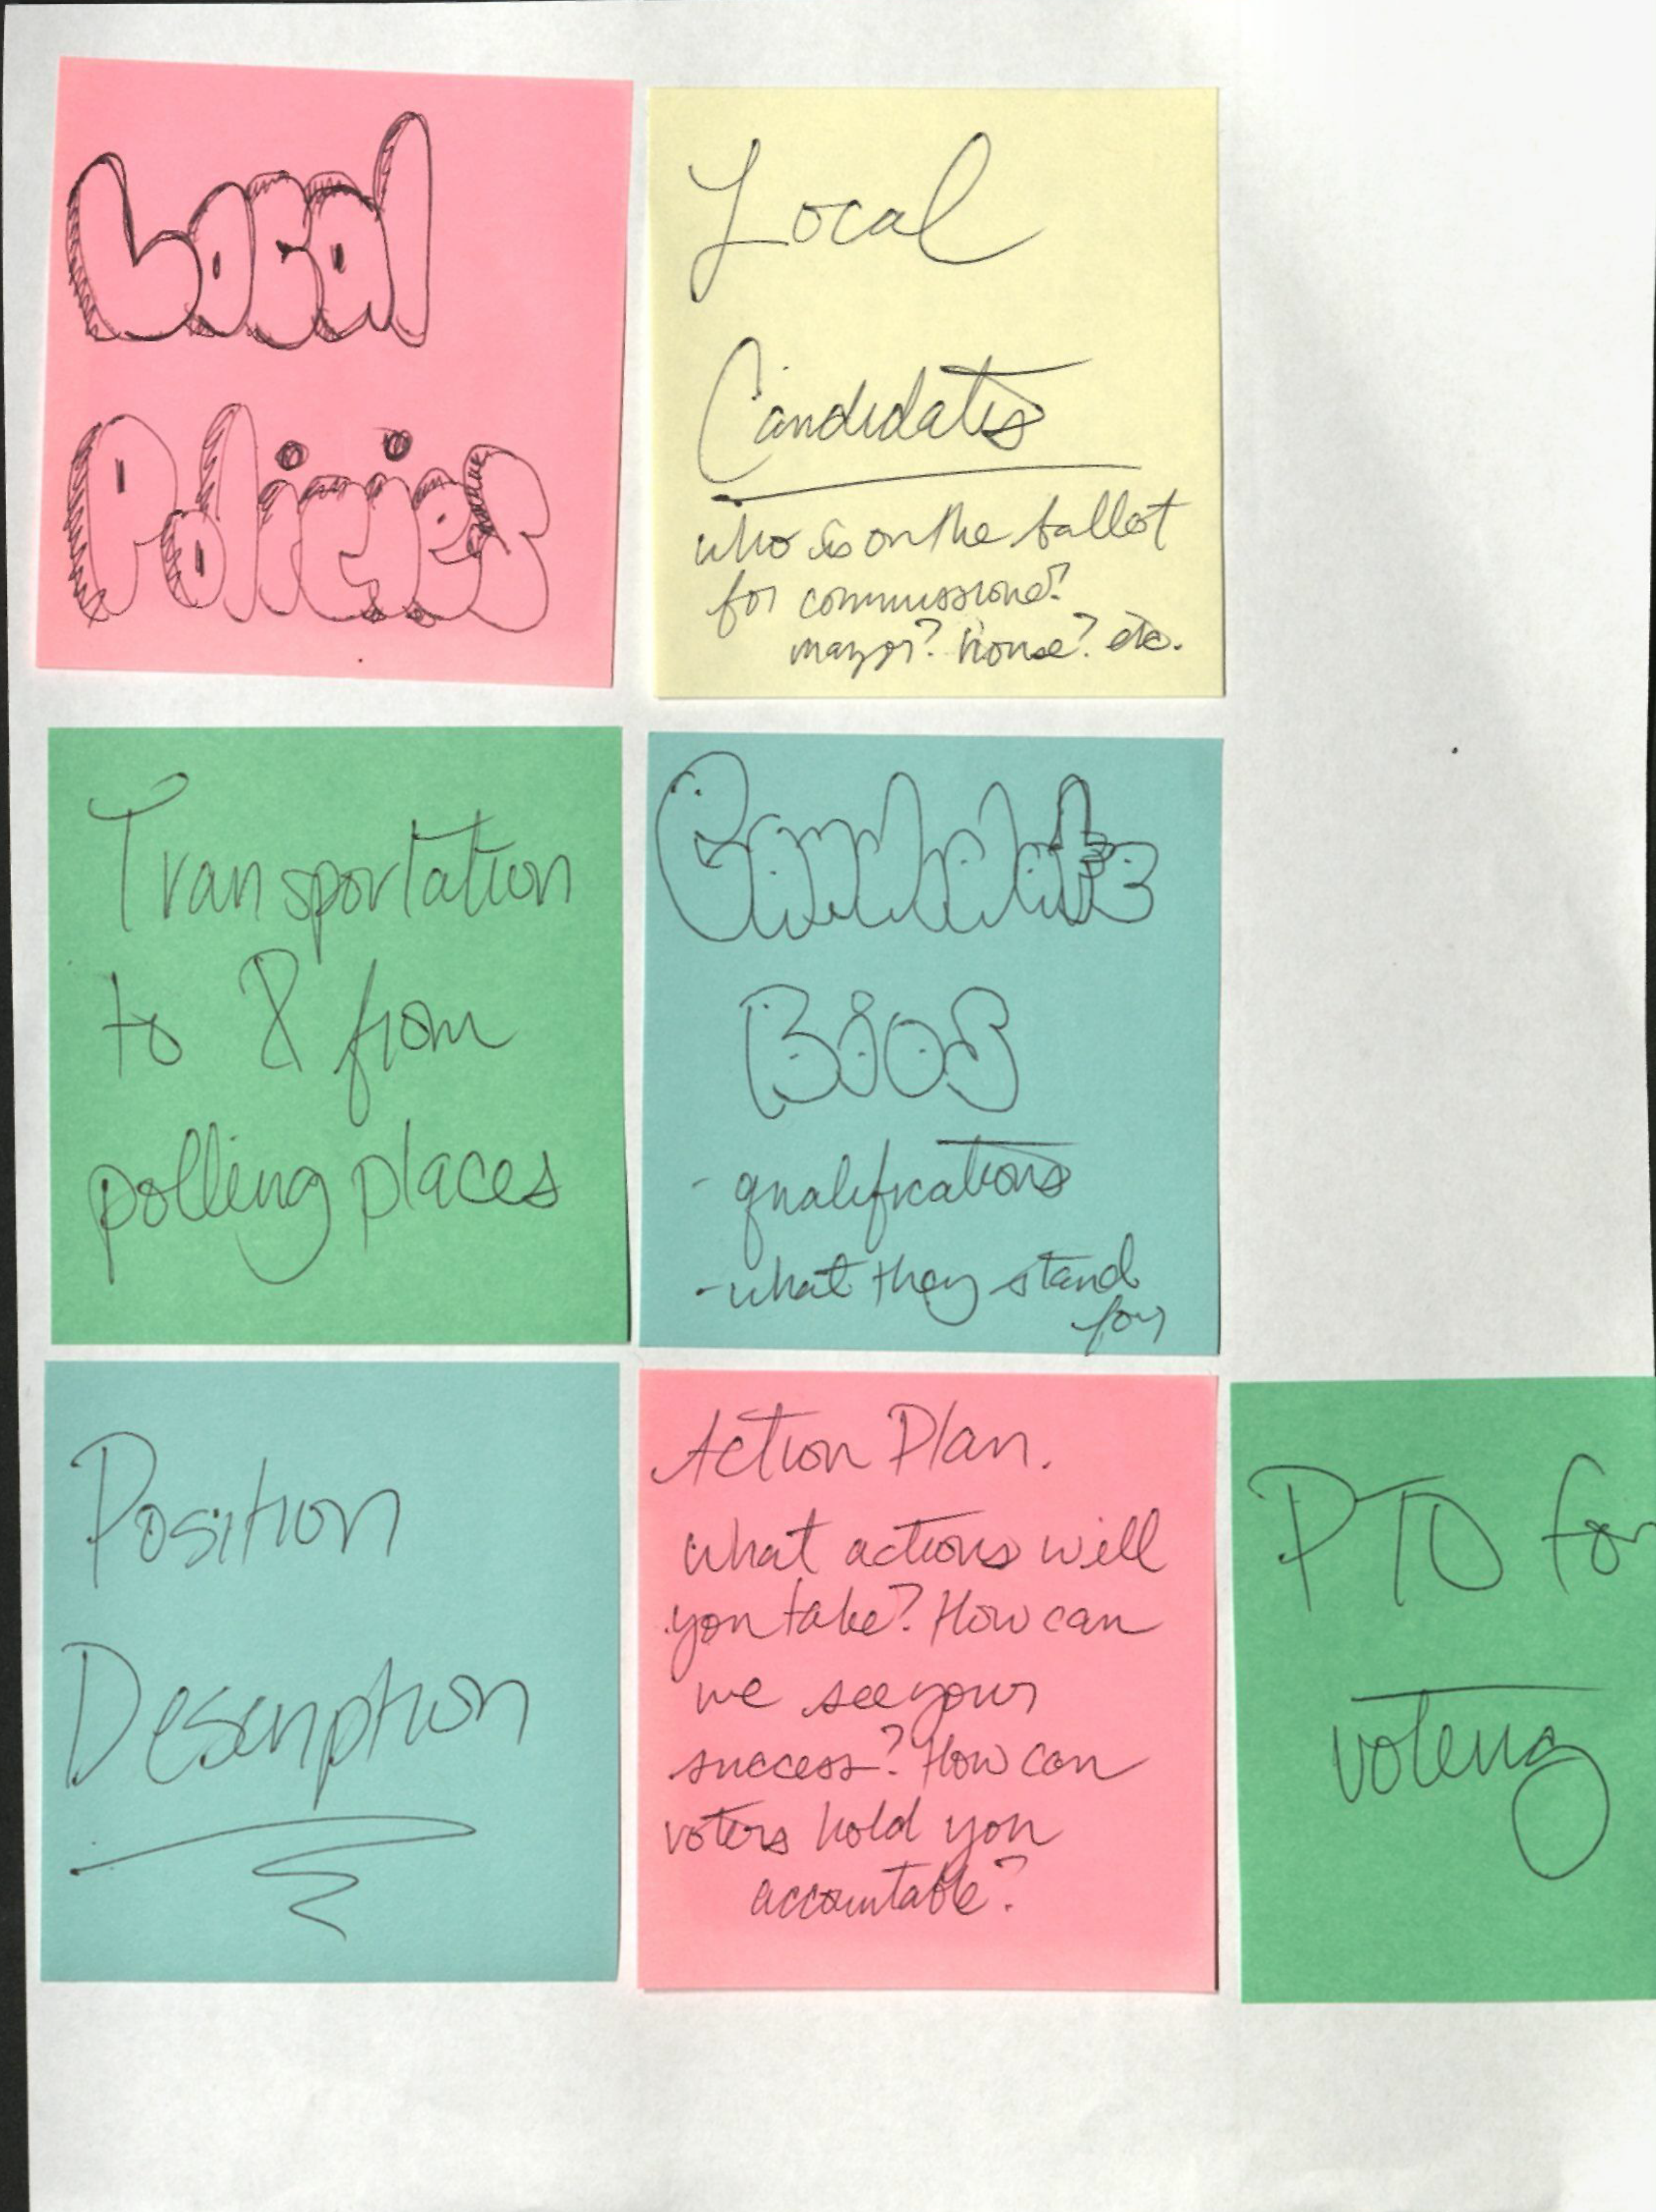 Local
Policies
Local
Candidates
who is on the ballot
for commissioner?
mayor? house? etc.
Transportation
to & from
polling places
Candidate
Bios
- qualifications
- what they stand
for
Position
Description
Action Plan.
what actions will
you take? How can
we see your
success? How can
voters hold you
accountable?
PTO for
voting